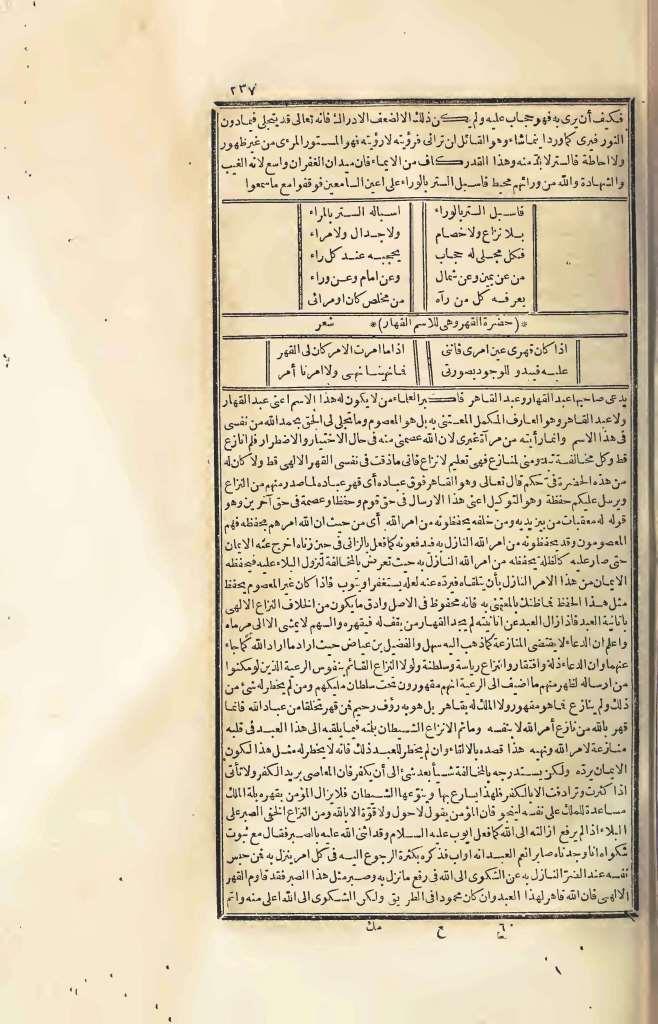 ٢٣٧
فكيف أن يرى به فهو حجاب عليه ولم يكن ذلك الا لضعف الادراك فانه تعالى قد يتجلى فيما دون
النور فيرى كما ورد أينما شاء وهو القائل لن ترانى فرؤيته لا رؤيته فهو المستور المرءى من غير ظهور
ولا احاطة فالستر لا بد منه وهذا القدر كاف من الايماء فان ميدان الغفران واسع لانه الغيب
والشهادة والله من ورائهم محيط فاسبل الستر بالوراء على اعين السامعين فوقفوا مع ما سمعوا
فاسبل الستر بالوراء اسباله الستر بالمراء
بلا نزاع ولا خصام ولا جدال ولا مراء
فكل مجلى له حجاب يحجبه عند كل راء
من عن يمين وعن شمال وعن امام وعن وراء
يعرفه كل من رآه من مخلص كان او مرائى
* (حضرة القهر وهى للاسم القهار) * شعر
اذا كان قهرى عين امرى فاننى اذا ما امرت الامر كان لى القهر
عليه فيبدو للوجود بصورتى فانهنا نهى ولا امرنا أمر
يدعى صاحبها عبد القهار وعبد القاهر فا كبر العلماء من لا يكون له هذا الاسم اعنى عبد القهار
ولا عبد القاهر وهو العارف المكمل المعتنى به بل هو المعصوم وما تجلى لى الحق بحمد الله من نفسى
فى هذا الاسم وانما رأيته من مرآة غيرى لان الله عصمنى منه فى حال الاختيار والاضطرار فلم انازع
قط وكل مخالفة تبدو منى لمنازع فهى تعليم لا نزاع فانى ما ذقت فى نفسى القهر الالهى قط ولا كان له
من هذه الحضرة فى حكم قال تعالى وهو القاهر فوق عباده أى قهر عباده لما صدر منهم من النزاع
ويرسل عليكم حفظة وهو التوكيل اعنى هذا الارسال فى حق قوم وحفظا وعصمة فى حق آخرين وهو
قوله له معقبات من بين يديه ومن خلفه يحفظونه من امر الله أى من حيث ان الله امرهم بحفظه فهم
المعصومون وقد يحفظونه من امر الله النازل به فيدفعونه كما فعل بالزانى فى حين زناه اخرج عنه الايمان
حتى صار عليه كالظلة يحفظه من امر الله النازل به حيث تعرض بالمخالفة لنزول البلاء عليه فيحفظه
الايمان من هذا الامر النازل بأن يتلقاه فيرده عنه لعله يستغفر او يتوب فاذا كان غير المعصوم يحفظ
مثل هذا الحفظ فما ظنك بالمعتنى به فانه محفوظ فى الاصل وادق ما يكون من الخلاف النزاع الالهى
بانانية العبد فاذا زال العبد عن انانيته لم يجد القهار من يقف له فيقهره والسهم لا يمشى الا الى مرماه
واعلم ان الدعاء لا يقتضى المنازعة كما ذهب اليه سهل والفضيل بن عياض حيث اراد ما اراد الله كما جاء
عنهما وان الدعاء ذلة وافتقار والنزاع رياسة وسلطنة ولولا النزاع القائم بنفوس الرعية الذين لو مكنوا
من ارساله لظهر منهم ما اضيف الى الرعية انهم مقهورون تحت سلطان مليكهم ومن لم يخطر له شئ من
ذلك ولم ينازع فما هو مقهور ولا الملك له بقاهر بل هو به رؤف رحيم فمن قهر متخلقا من عباد الله فانما
قهر بالله من نازع أمر الله لا بنفسه وما ثم الا نزاع الشيطان بلمته فيما يلقيه الى هذا العبد فى قلبه
منازعة لامر الله ونهيه هذا قصده بالالقاء وان لم يخطر للعبد ذلك فانه لا يخطر له مثل هذا لكون
الايمان يرده ولكن يستدرجه بالمخالفة شيأ بعد شئ الى أن يكفر فان المعاصى بريد الكفر ولا تأتى
اذا كثرت وترادفت الا بالكفر فلهذا يسارع بها وينوعها الشيطان فلا يزال المؤمن يقهره بلمة الملك
مساعدة للملك على نفسه لينجو فان المؤمن يقول لا حول ولا قوة الا بالله ومن النزاع الخفى الصبر على
البلاء اذا لم يرفع ازالته الى الله كما فعل ايوب عليه السلام وقد اثنى الله عليه بالصبر فقال مع ثبوت
شكواه انا وجدناه صابرا نعم العبد انه اواب فذكره بكثرة الرجوع اليه فى كل امر ينزل به فمن حبس
نفسه عند الضر النازل به عن الشكوى الى الله فى رفع ما نزل به وصبر مثل هذا الصبر فقد قاوم القهر
الالهى فان الله قاهر لهذا العبد وان كان محمودا فى الطريق ولكن الشكوى الى الله اعلى منه واتم
ح مك